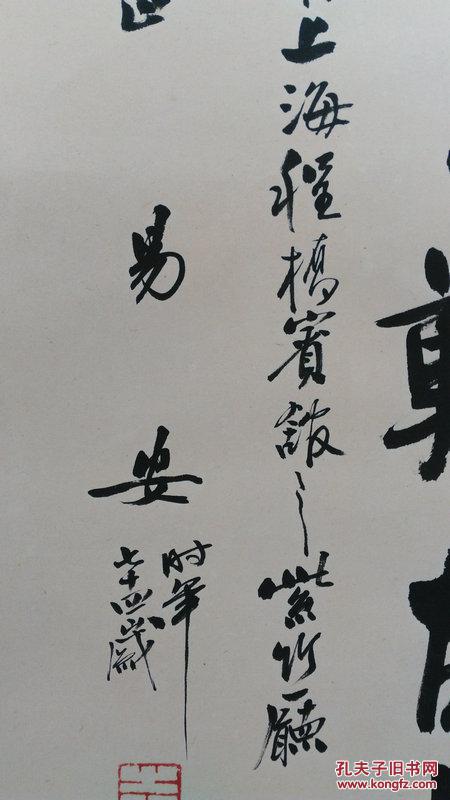 上海程橋賓館之紫竹廳
易安
时年
七十四歲
孔夫子旧书网
www.kongfz.com